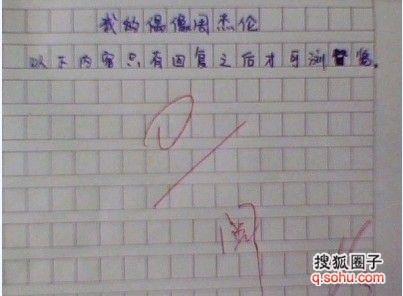 我的偶像周杰伦
以下内容只有回复之后才可浏览。
阅
搜狐圈子
q.sohu.com